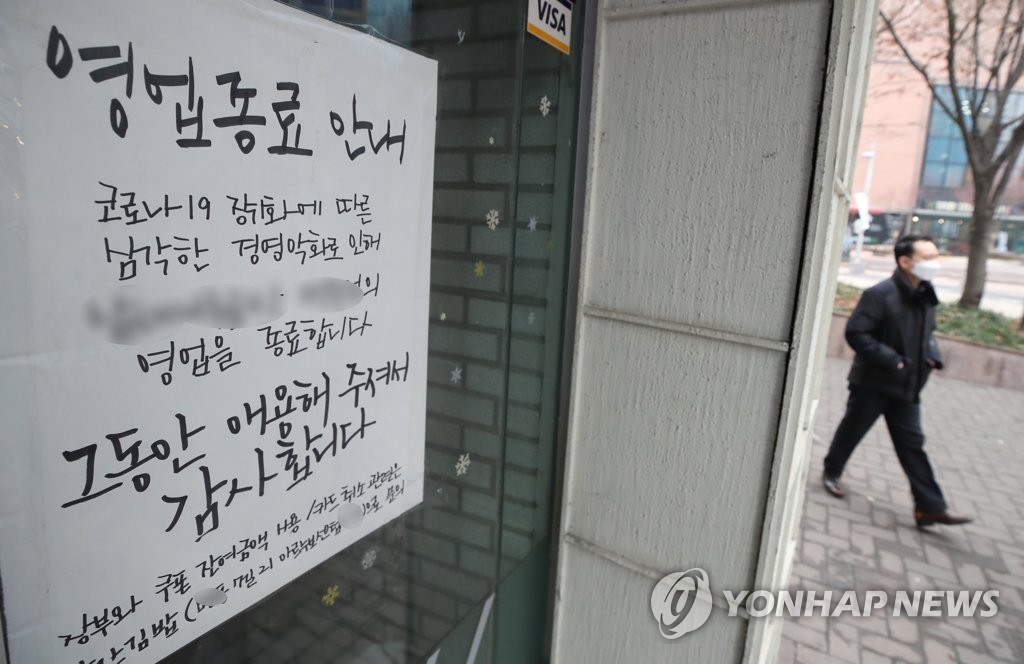 영업종료 안내
코로나19 장기화에 따른
심각한 경영악화로 인해
의
영업을 종료합니다
그동안 애용해 주셔서
감사합니다
장부와 쿠폰 잔여금액 사용 /카드 취소 관련은
김밥 ( )으로 문의
VISA
YONHAP NEWS